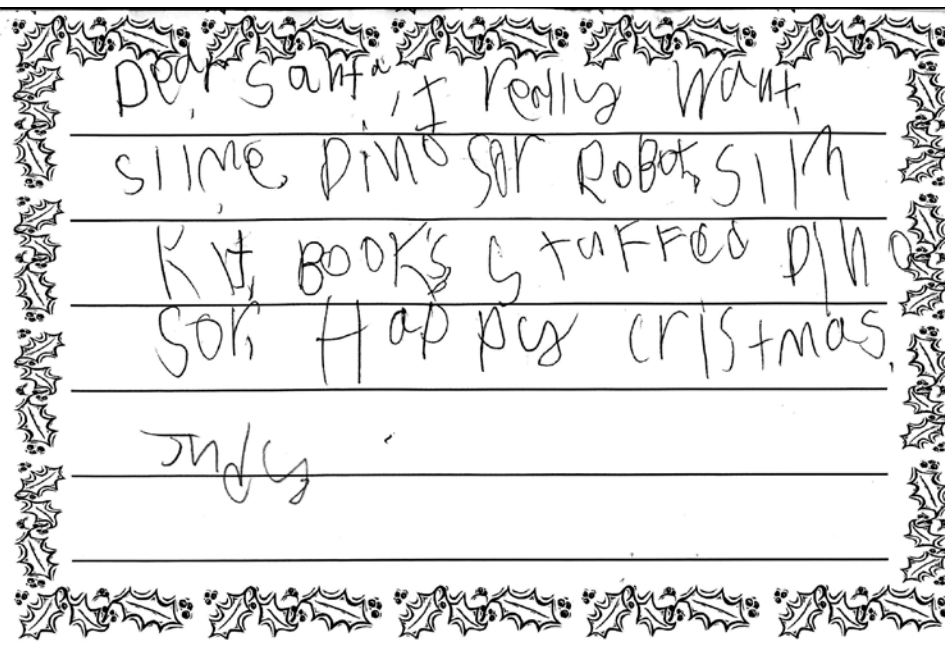 Dear Santa, I really want
slime, Dino sor Robot, Slim
Kit, Book's, Stuffed Dino
sor, Happy cristmas.